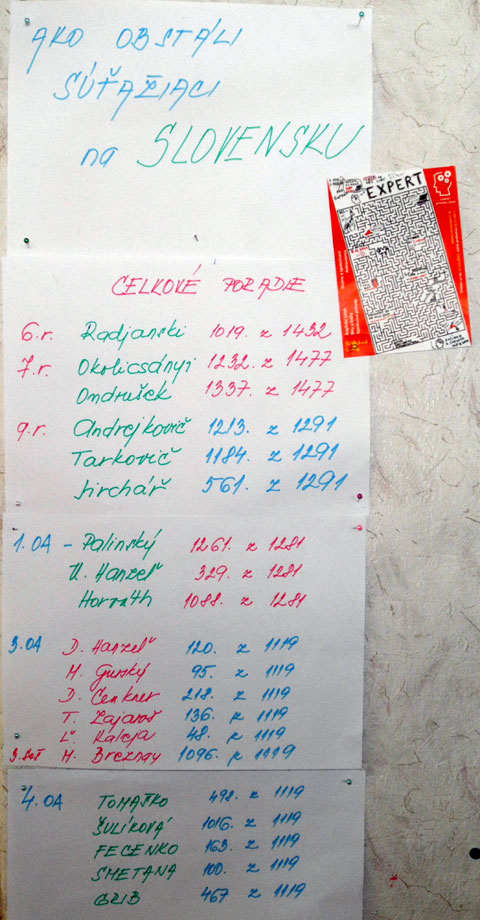 AKO OBSTÁLI
SÚŤAŽIACI
na SLOVENSKU
EXPERT
CELKOVÉ PORADIE
6.r. Radjanski 1019. z 1432
7.r. Okolicsányi 1232. z 1477
Ondrušek 1337. z 1477
9.r. Andrejkovič 1213. z 1291
Tarkovič 1184. z 1291
Jirchář 561. z 1291
1.OA - Palinský 1261. z 1281
M. Hanzeľ 329. z 1281
Horvath 1088. z 1281
3.OA D. Hanzeľ 120. z 1119
M. Gurský 95. z 1119
D. Cenkner 218. z 1119
T. Zajaroš 136. z 1119
Ľ. Kaleja 48. z 1119
M. Breznay 1096. z 1119
4.OA TOMAŤKO 498. z 1119
ŠULÍKOVÁ 1016. z 1119
FECENKO 163. z 1119
SMETANA 100. z 1119
GRIB 467 z 1119